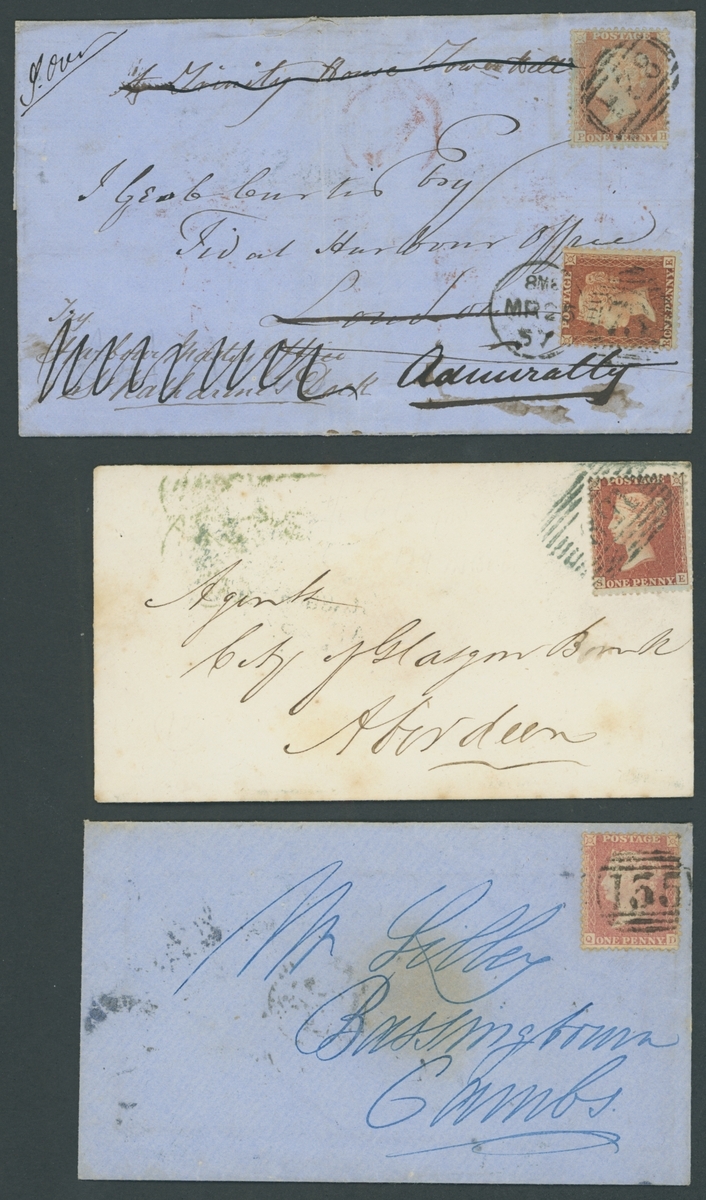 J. Over
Trinity House Tower Hill
POSTAGE
ONE PENNY
J Geo B Curtis Esq
Tidal Harbour Office
London
8
MR 2
57
POSTAGE
Try
Office
St Katharine's Dock
Admiralty
POSTAGE
S ONE PENNY E
Agent
City of Glasgow Bank
Aberdeen
POSTAGE
Q ONE PENNY D
155
Mr Lilley
Bassingbourn
Cambs.